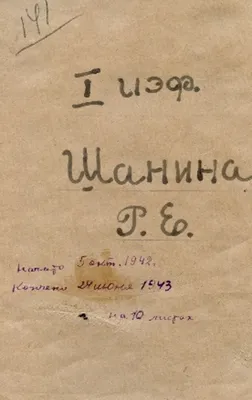 141
I изф.
Шанина
Р. Е.
Начато 5 окт. 1942.
Кончено 24 июня 1943
на 10 листах